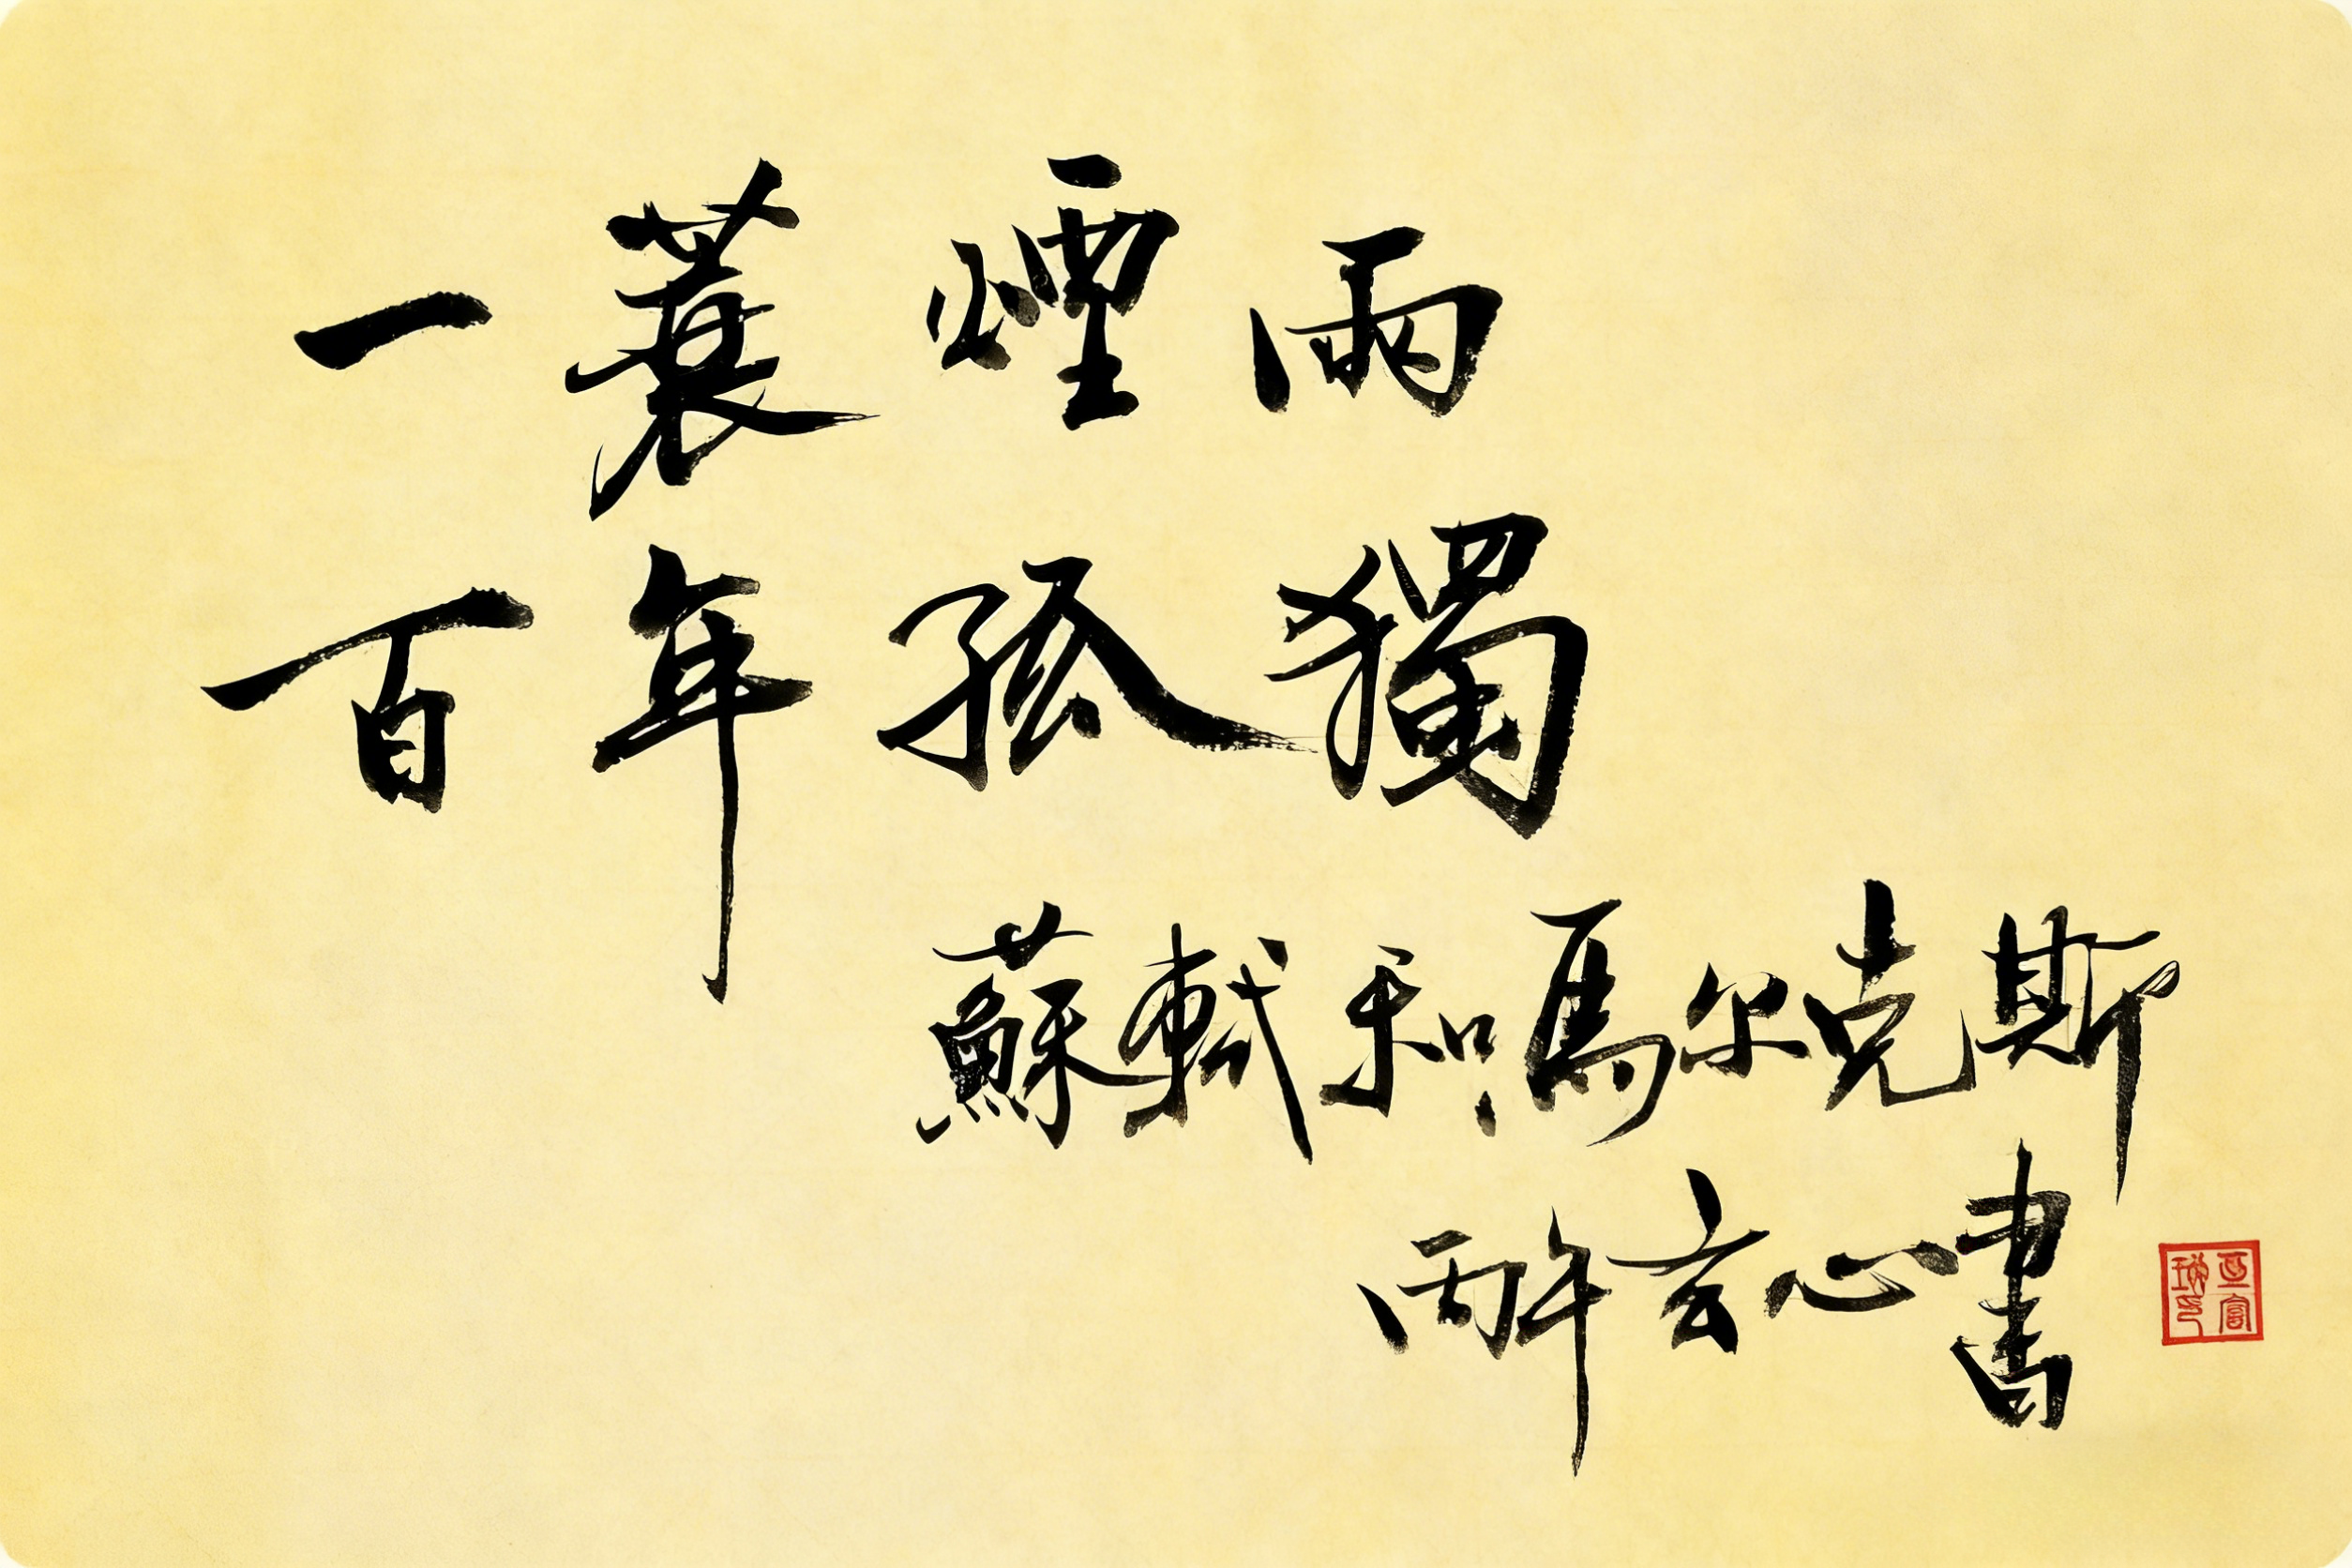 一蓑煙雨
百年孤獨
蘇軾和馬尔克斯
丙午玄心書